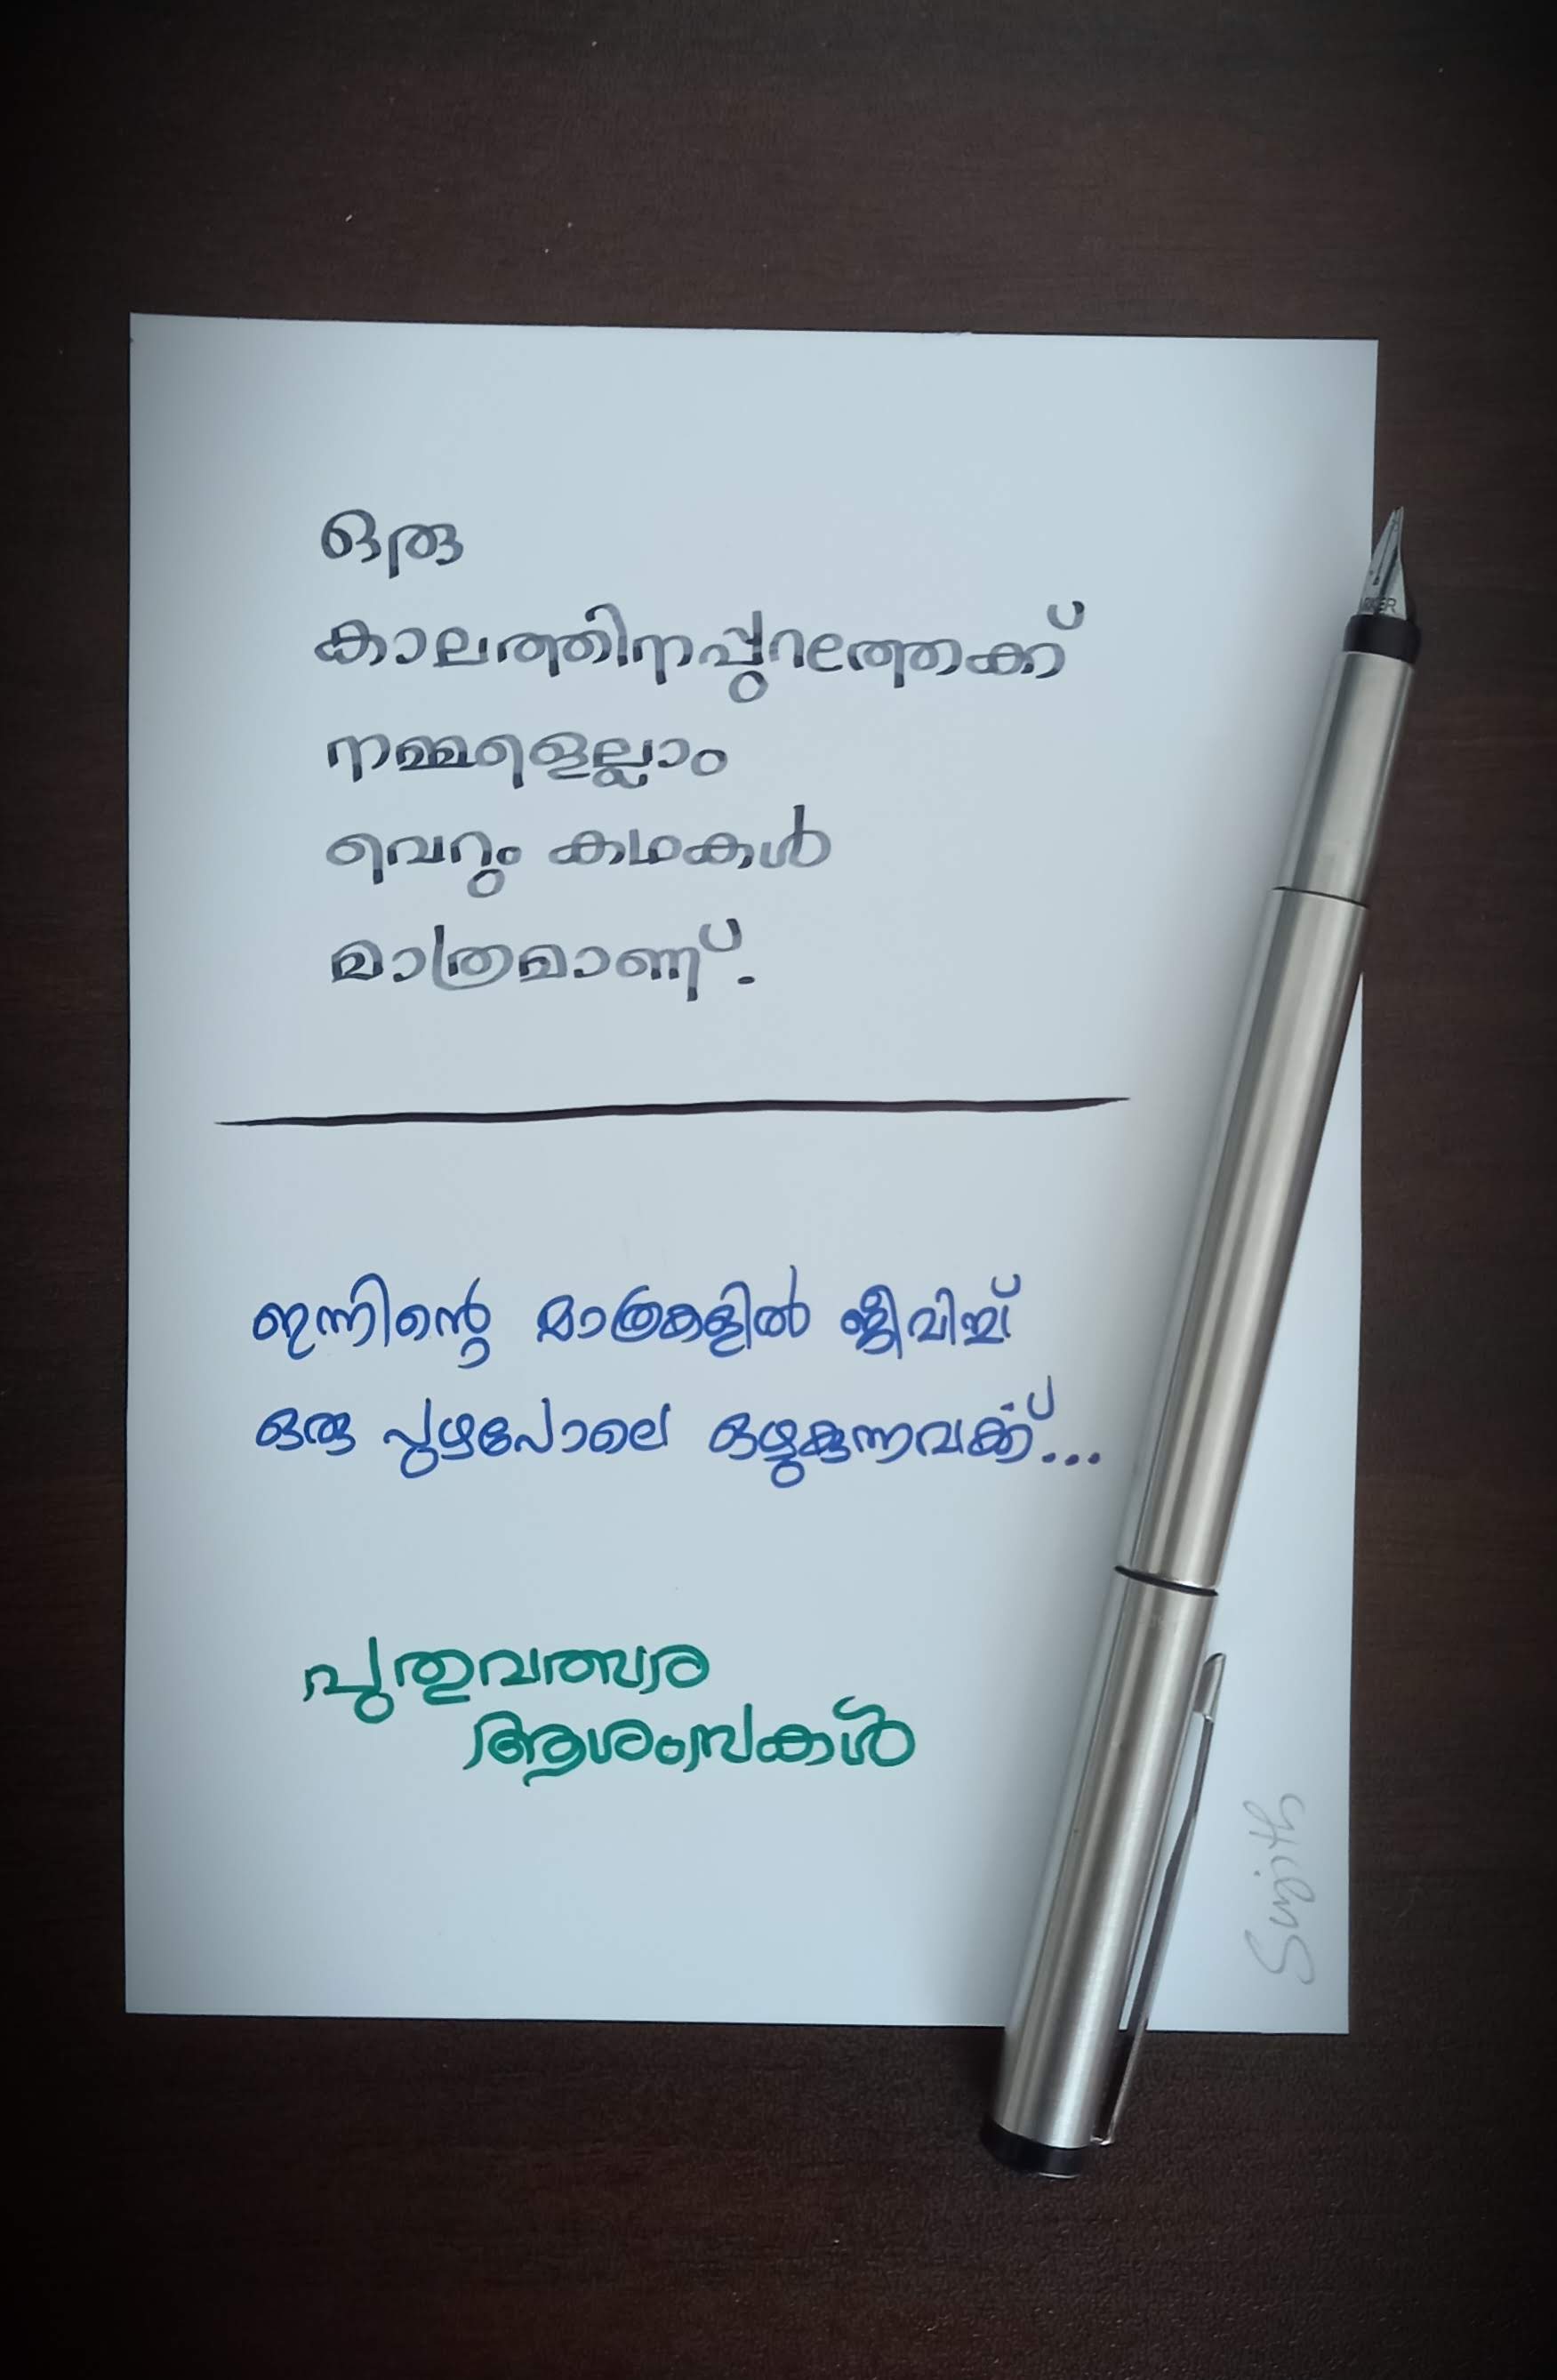 ഒരു
കാലത്തിനപ്പുറത്തേക്ക്
നമ്മളെല്ലാം
വെറും കഥകൾ
മാത്രമാണ്.
ഇന്നിന്റെ മാത്രകളിൽ ജീവിച്ച്
ഒരു പുഴപോലെ ഒഴുകുന്നവർക്ക്...
പുതുവത്സര
ആശംസകൾ
Sujith